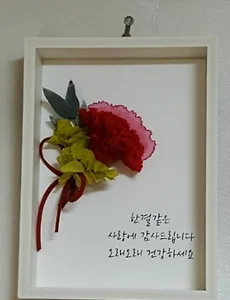 한결같은
사랑에 감사드립니다
오래오래 건강하세요